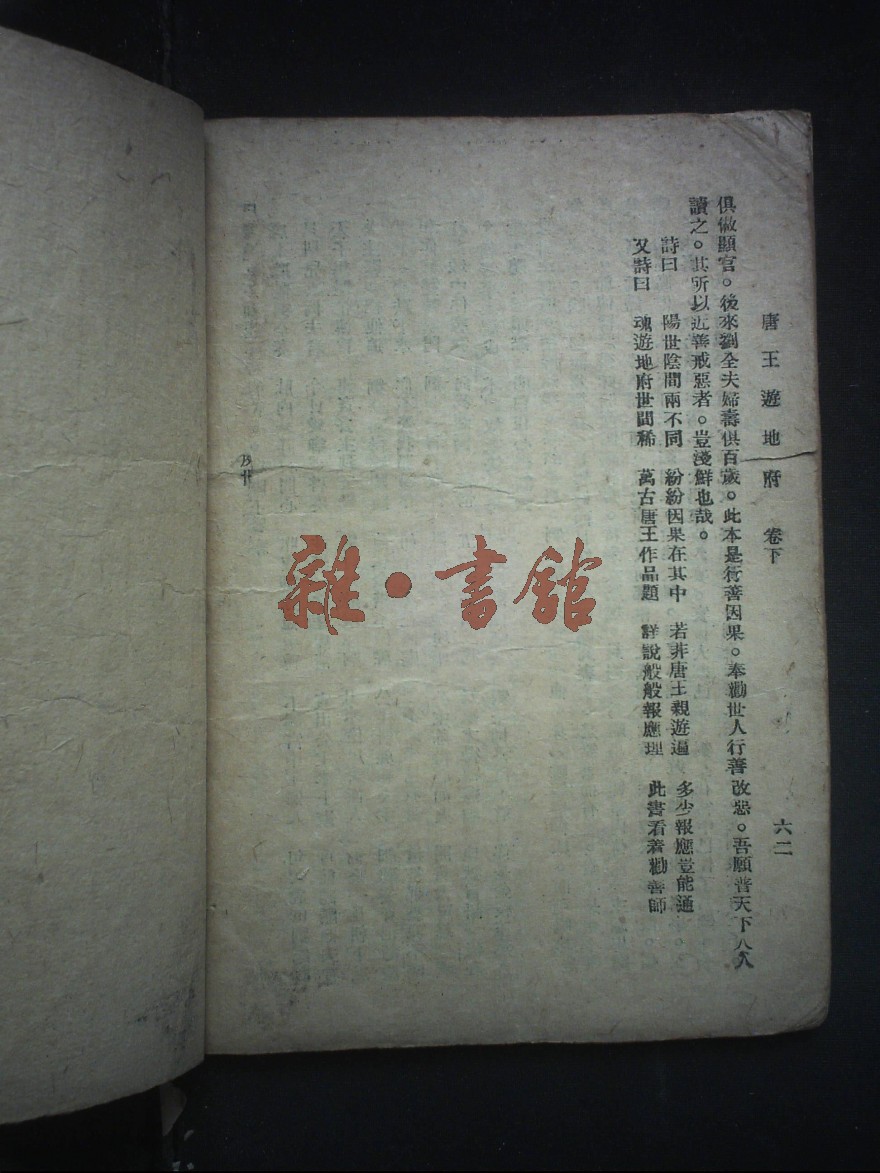 唐王遊地府 卷下 六二
俱做顯官。後來劉全夫婦壽俱百歲。此本是行善因果。奉勸世人行善改惡。吾願普天下人人
讀之。其所以近善戒惡者。豈淺鮮也哉。
詩曰 陽世陰間兩不同 紛紛因果在其中 若非唐王親遊遍 多少報應豈能通
又詩曰 魂遊地府世間稀 萬古唐王作品題 詳說般般報應理 此書看著勸善師
雜·書館